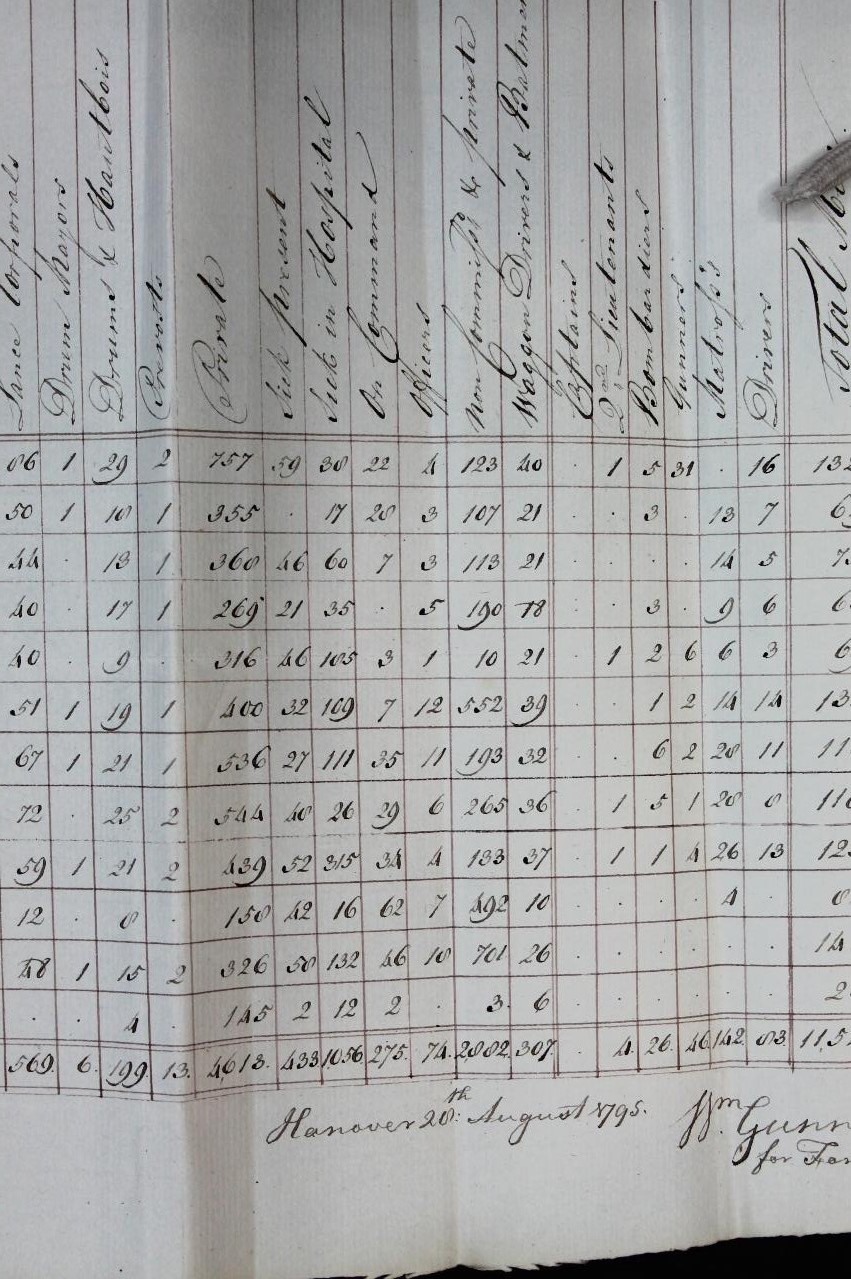 Lance Corporals
Drum Majors
Drums & Hautbois
Provosts
Private
Sick present
Sick in Hospital
On Command
Officers
Non Commiss'd & private
Waggon Drivers & Batmen
Captains
2nd Lieutenants
Bombardiers
Gunners
Matross's
Drivers
Total
86 1 29 2 757 59 38 22 4 123 40 . 1 5 31 . 16 132
50 1 18 1 355 . 17 28 3 107 21 . . 3 . 13 7 6
44 . 13 1 368 46 60 7 3 113 21 . . . . 14 5 7
40 . 17 1 269 21 35 . 5 190 18 . . 3 . 9 6 6
40 . 9 . 316 46 185 3 1 10 21 . 1 2 6 6 3 6
51 1 19 1 400 32 109 7 12 552 39 . . 1 2 14 14 13
67 1 21 1 536 27 111 35 11 193 32 . . 6 2 28 11 11
72 . 25 2 544 48 26 29 6 265 36 . 1 5 1 28 8 11
59 1 21 2 439 52 315 34 4 133 37 . 1 1 4 26 13 12
12 . 8 . 158 42 16 62 7 492 10 . . . . 4 . 8
48 1 15 2 326 58 132 46 18 701 26 . . . . . . 14
. . 4 . 145 2 12 2 . 3 6 . . . . . . 2
569. 6. 199 13. 4613. 433 1056 275. 74. 2882. 307. . 4. 26. 46 142. 83. 11,5
Hanover 28th. August 1795.
Wm. Gunn
for